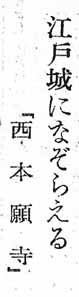 江戸城になぞらえる
『西本願寺』